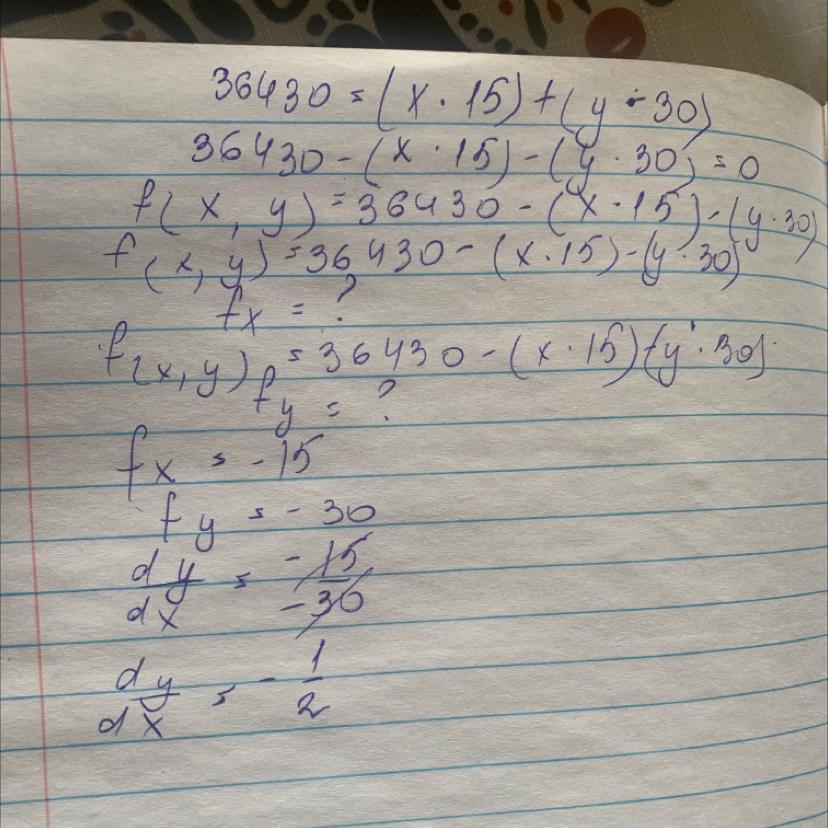 36430 = (x · 15) + (y · 30)
36430 - (x · 15) - (y · 30) = 0
f(x, y) = 36430 - (x · 15) - (y · 30)
f(x, y) = 36430 - (x · 15) - (y · 30)
fx = ?
f(x, y) = 36430 - (x · 15) - (y · 30)
fy = ?
fx = -15
fy = -30
dy/dx = -15/-30
dy/dx = -1/2